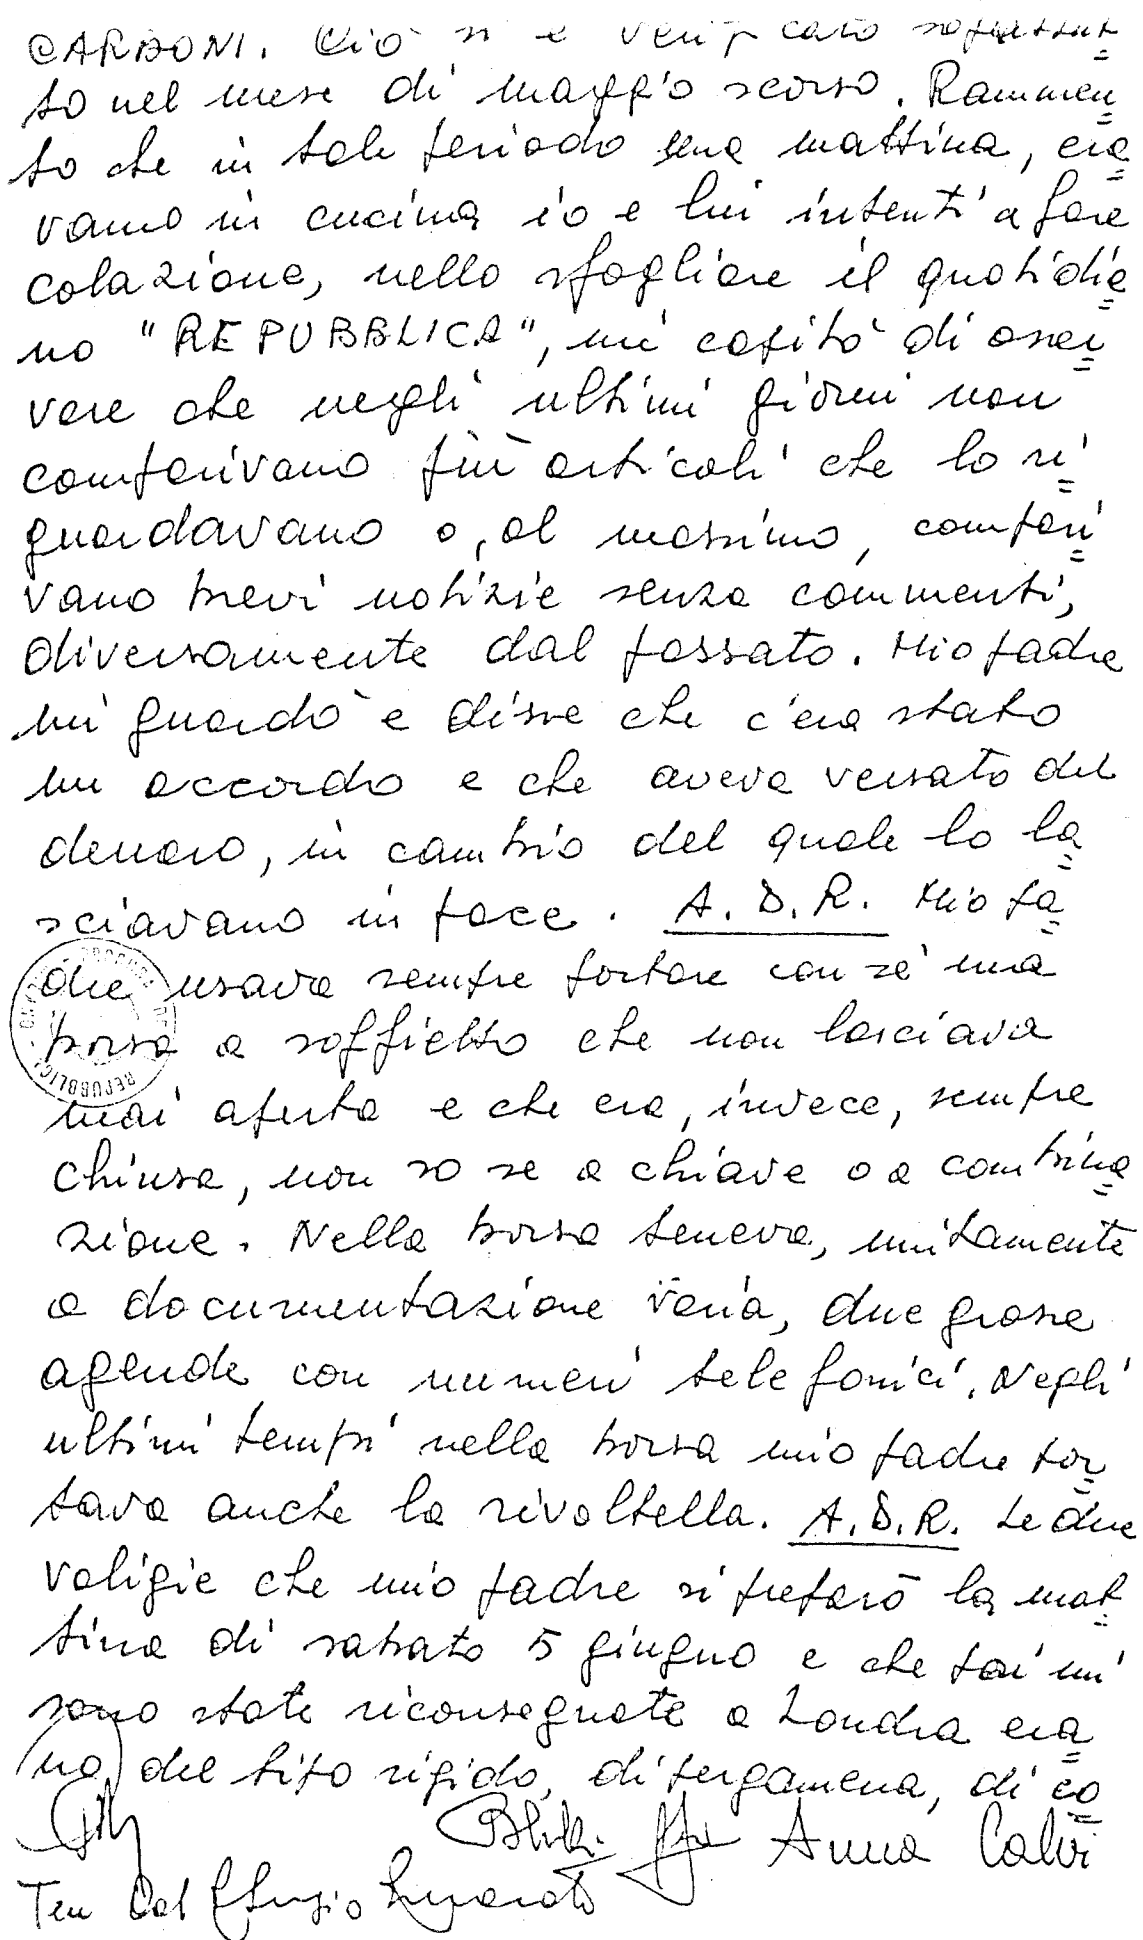 CARBONI. Ciò si è verificato soprattut=
to nel mese di maggio scorso. Rammen=
to che in tale periodo una mattina, era=
vamo in cucina io e lui intenti a fare
colazione, nello sfogliare il quotidia=
no "REPUBBLICA", mi capitò di osser=
vare che negli ultimi giorni non
comparivano più articoli che lo ri=
guardavano o, al massimo, compari=
vano brevi notizie senza commenti,
diversamente dal passato. Mio padre
mi guardò e disse che c'era stato
un accordo e che aveva versato del
denaro, in cambio del quale lo la=
sciavano in pace. A.D.R. Mio pa=
dre usava sempre portare con sé una
borsa a soffietto che non lasciava
mai aperta e che era, invece, sempre
chiusa, non so se a chiave o a combina=
zione. Nella borsa teneva, unitamente
a documentazione varia, due grosse
agende con numeri telefonici. Negli
ultimi tempi nella borsa mio padre por=
tava anche la rivoltella. A.D.R. Le due
valigie che mio padre si preparò la mat=
tina di sabato 5 giugno e che poi mi
sono state riconsegnate a Londra era=
no del tipo rigido, di pergamena, di co=
Anna Calvi
Ten Col